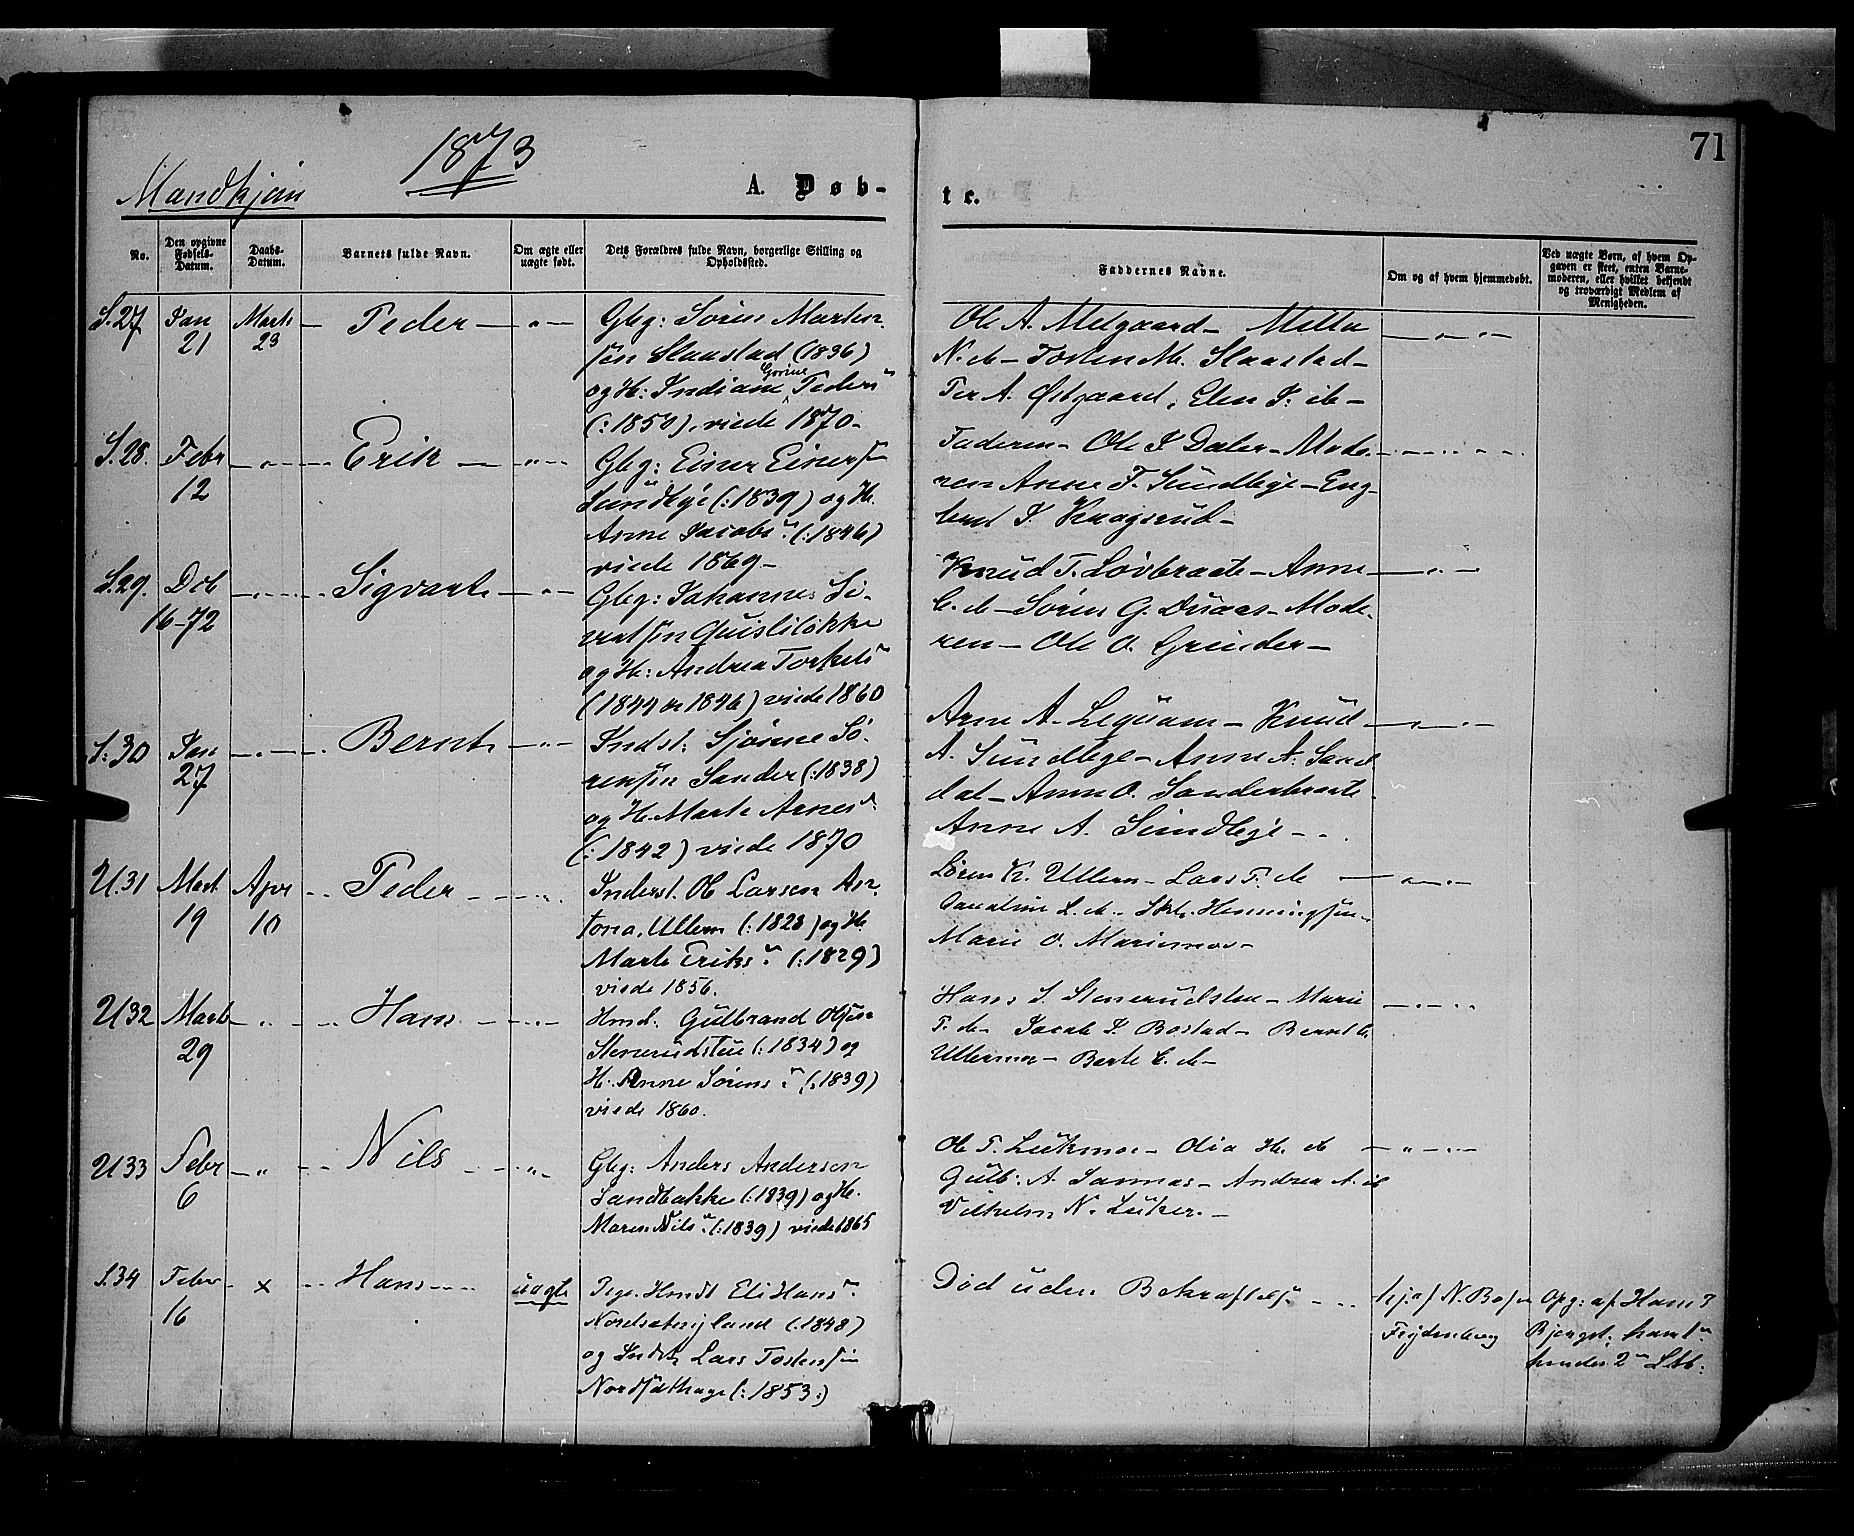 71
1873
Mandkjøn
A. Døb-
te.
No.
Den opgivne Fødsels-Datum.
Daabs-Datum.
Barnets fulde Navn.
Om ægte eller uægte født.
Dets Forældres fulde Navn, borgerlige Stilling og Opholdssted.
Faddernes Navne.
Om og af hvem hjemmedøbt.
Ved uægte Børn, af hvem Opgaven er skeet, enten Barnemoderen, eller hvilket bekjendt og troværdigt Medlem af Menigheden.
S.27 Jan 21 Marts 23 Peder
Gbg: Søren Marten
sen Slaastad (1836)
og H: Indiane Gorine Peders
(:1850), viede 1870
Ole A. Melgaard
N. ib Tosten M. Slaastad
Per A. Østgaard, Elen ib
S.28. Febr 12 Erik
Gbg: Einer Einersen
Sundbye (:1839) og H.
Anne Jacobs (:1846)
viede 1869
Faderen Ole Daler Mode-
ren Anne Sundbye Eng-
bret Kragsrud
S.29. Dcb 16-72 Sigvart
Gbg: Johannes Si-
vertsen Quisliløkke
og H: Andrea Torkels
(1844 og 1846) viede 1860
Knud T. Løvbraate Anne
ib Søren G. Duaas Mode-
ren Ole O. Grinder
S:30 Jan 27 Bernt
Indst: Sjønne Sø-
rensen Sander (:1838)
og H. Marte Arnes
(:1842) viede 1870
Arne A. Knud
A. Sundbye Anne A. Sand
dal Anne O. Sanderbraate
Anne A. Sundbye
U.31 Mart 19 Apr 10 Peder
Inderst. Ole Larsen An-
tona, Ullern (:1828) og H
Marte Eriks (:1829)
viede 1856.
Søren K. Ullern Lars P. ib
L. ib Henningsen
Marie O. Mariemoe
U32 Mart 29 Hans
Hmd: Gulbrand Olsen
Stenerudstuen (:1834) og
H. Anne Sørens (:1839)
viede 1860.
Hans Stenerudstuen Marie
P. ib Jacob Bostad Bernt
Ullermoe Berte ib
U33 Febr 6 Nils
Gbg: Anders Andersen
Sandbakke (:1839) og H.
Maren Nils (:1839) viede 1865
Ole Lukmoe Olia H. ib
Gulb: A. Andrea A. ib
Vilhelm N. Luker
S.34 Febr 16 x Hans uægte
Pige Hmdt Eli Hans
(:1848)
og Indst. Lars Tostensen
(:1853:)
Død uden Bekræftelse
hj. af N.
Opg: af Hans
2